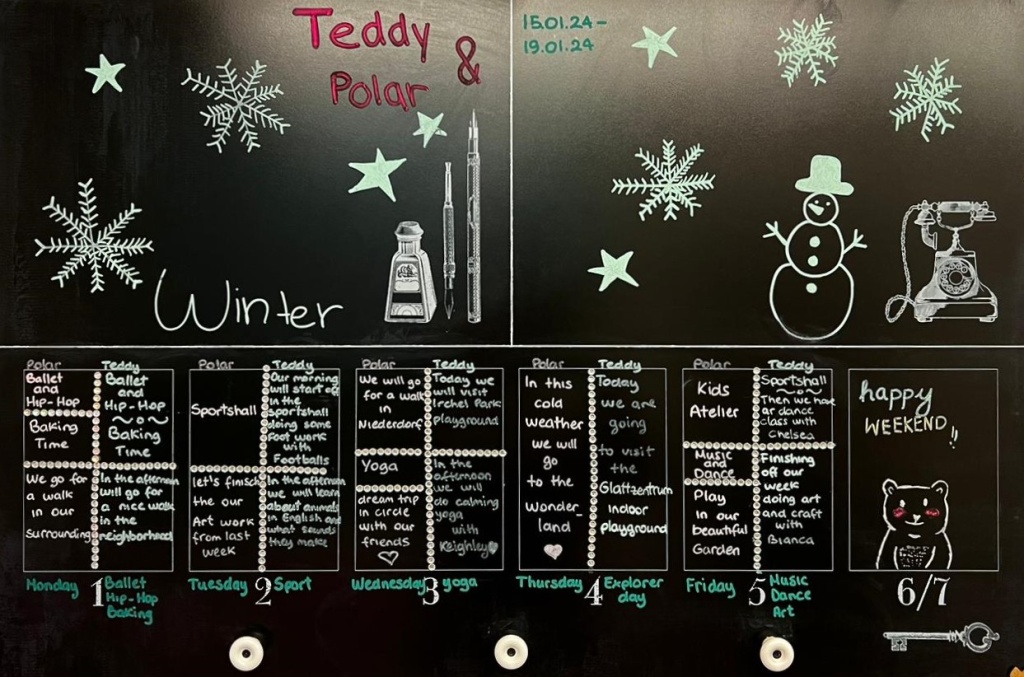 Teddy
&
Polar
15.01.24 –
19.01.24
Winter
Polar
Ballet
and
Hip-Hop
Baking
Time
We go for
a walk
in our
surrounding
Teddy
Ballet
and
Hip-Hop
~o~
Baking
Time
In the afternoon
will go for
a nice walk
in the
neighborhood
Monday
1
Ballet
Hip-Hop
Baking
Polar
Sportshall
let's finisch
the our
Art work
from last
week
Teddy
Our morning
will start of
in the
sportshall
doing some
foot work
with
Footballs
In the afternoon
we will learn
about animals
in English and
what sounds
they make
Tuesday
2
Sport
Polar
We will go
for a walk
in
Niederdorf
Yoga
dream trip
in circle
with our
friends
Teddy
Today we
will visit
Irchel Park
playground
In the
afternoon
we will
do calming
yoga
with
Keighley
Wednesday
3
yoga
Polar
In this
cold
weather
we will
go
to the
Wonder_
land
Teddy
Today
we are
going
to visit
the
Glattzentrum
indoor
playground
Thursday
4
Explorer
day
Polar
Kids
Atelier
Music
and
Dance
Play
in our
beautiful
Garden
Teddy
Sportshall
Then we have
ar dance
class with
Chelsea
Finishing
off our
week
doing art
and craft
with
Bianca
Friday
5
Music
Dance
Art
happy
WEEKEND!!
6/7